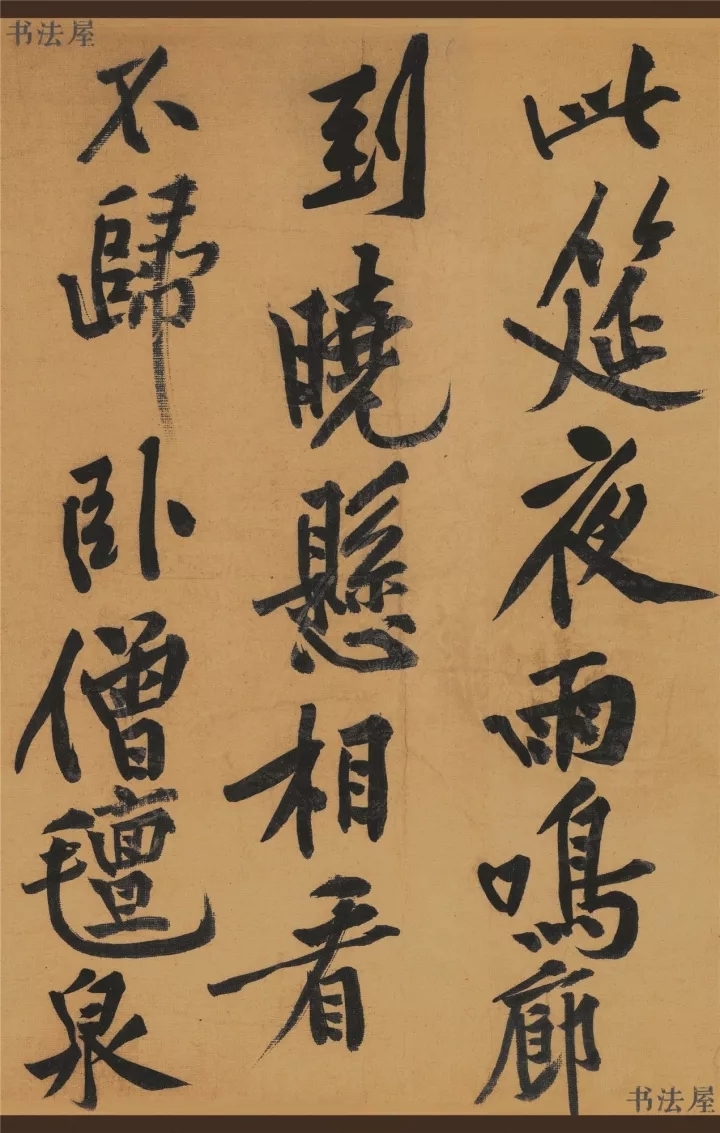 书法屋
此筵夜雨鳴廊
到曉懸相看
不歸卧僧氊泉
书法屋